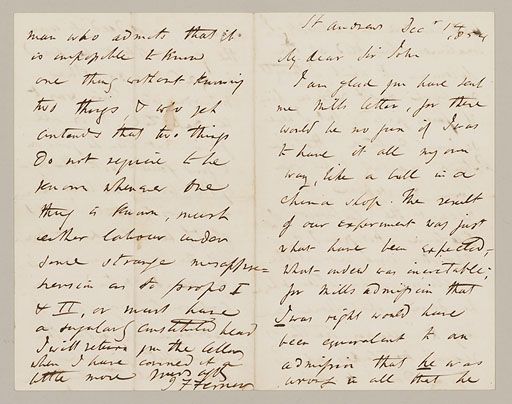 St Andrews Dec
My dear Sir John
I am glad you have sent
me Mills letter, for there
would be no fun if I was
to have it all my own
way, like a bull in a
china shop. The result
of our experiment was just
what have been expected,
what indeed was inevitable;
for Mills admission that
I was right would have
been equivalent to an
admission that he was
wrong in all that he
man who admits that it
is impossible to know
one thing without knowing
two things, & who yet
contends that two things
do not require to be
known whenever one
thing is known, must
either labour under
some strange misappre=
hension as to props I
& II, or must have
a singularly constituted head
I will return you the letter
when I have conned it a
little more yours
J F Ferrier